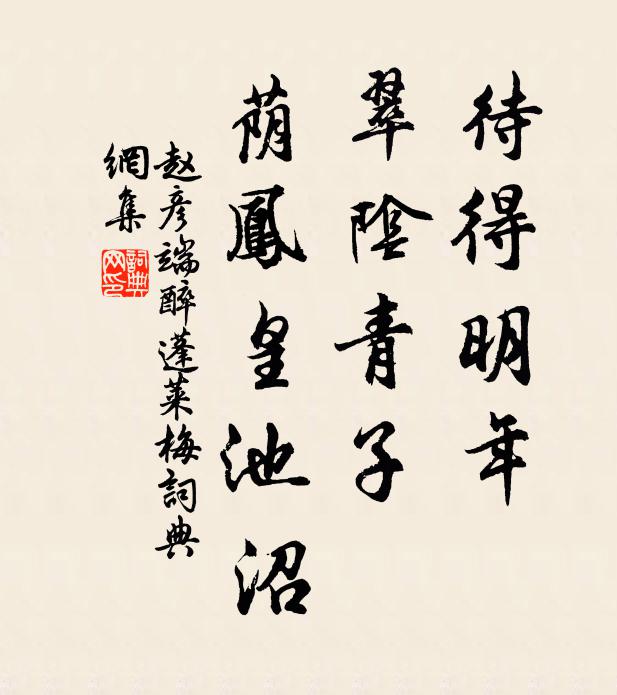 待得明年
翠陰青子
荫鳳皇池沼
赵彦端醉蓬莱梅詞典
網集
詞典
网印